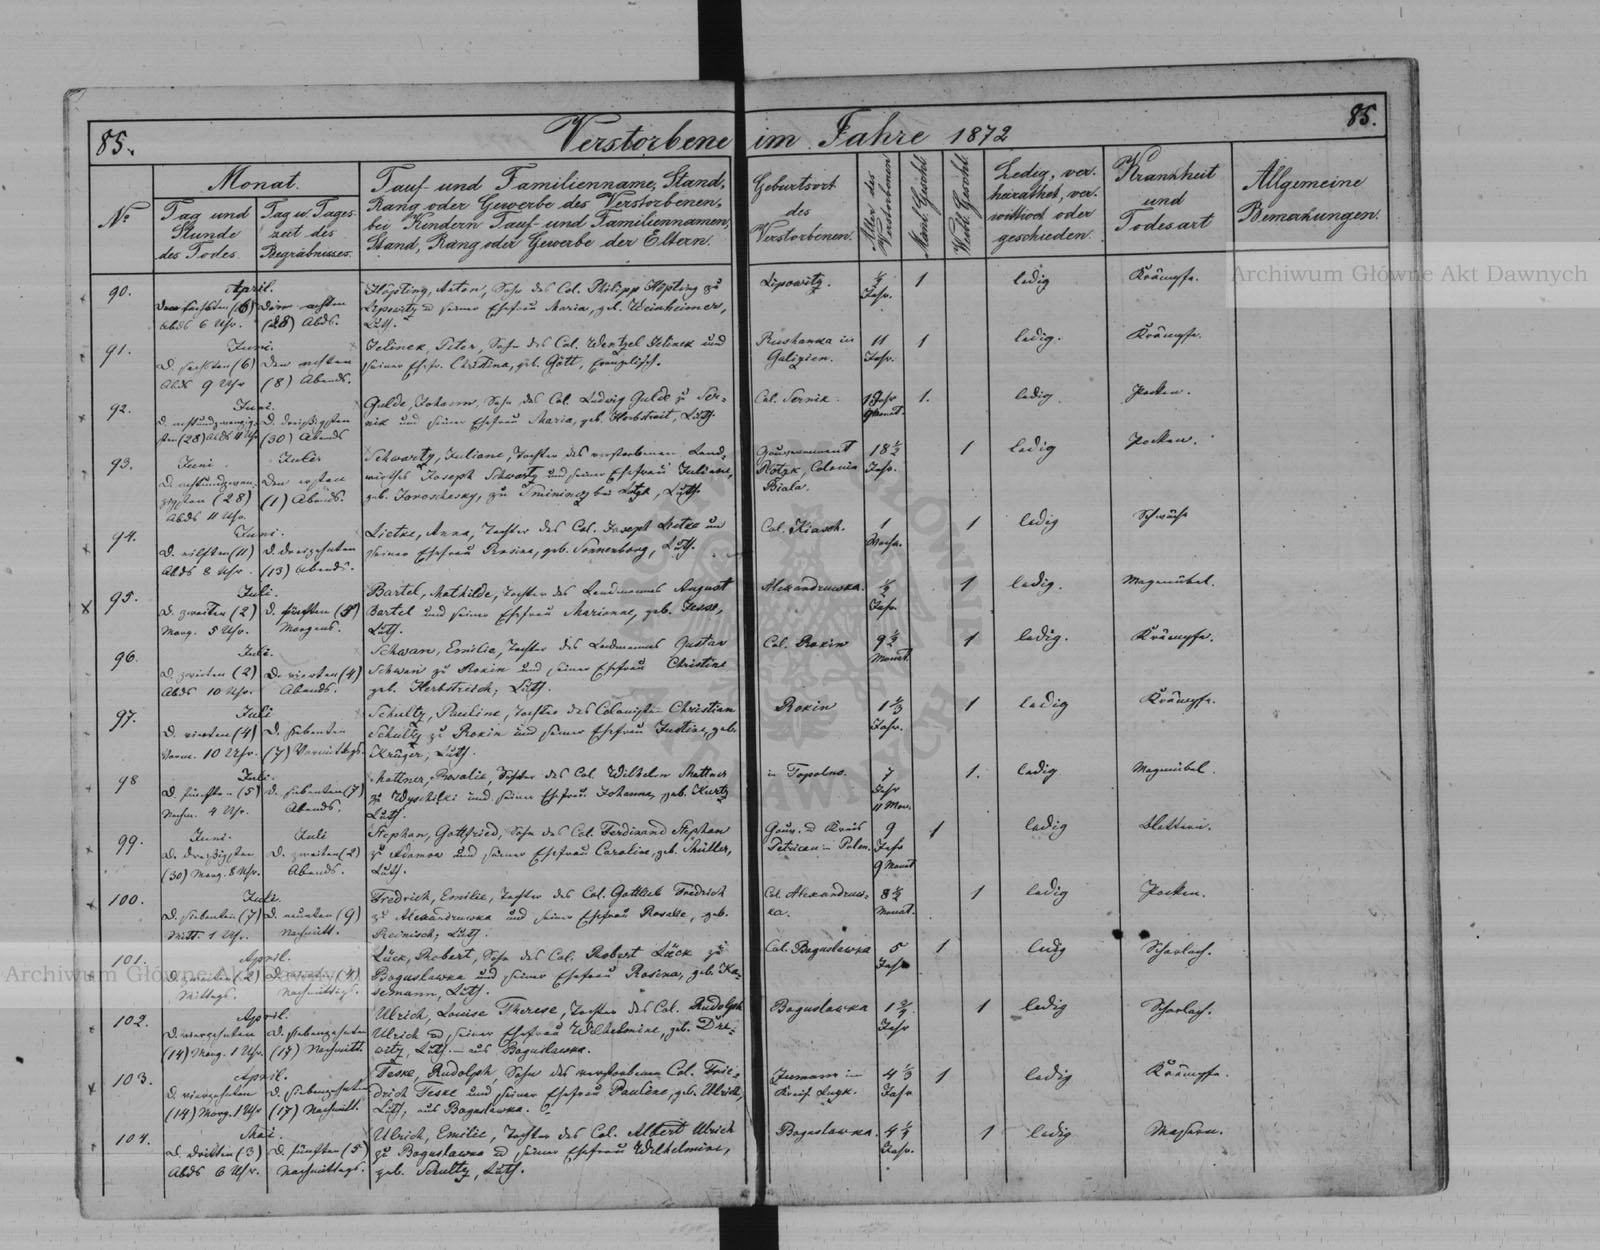 85.
Verstorbene im Jahre 1872
85.
No
Monat.
Tag und Stunde des Todes.
Tag u. Tageszeit des Begräbnisses.
Tauf- und Familienname, Stand,
Rang oder Gewerbe des Verstorbenen,
bei Kindern Tauf- und Familiennamen,
Stand, Rang oder Gewerbe der Eltern.
Geburtsort
des
Verstorbenen.
Alter des Verstorbenen
Männl. Geschl.
Weibl. Geschl.
Ledig, ver-
heirathet, ver-
wittwet oder
geschieden
Krankheit
und
Todesart
Allgemeine
Bemerkungen.
90.
April.
Abds 6 Uhr. (28) Abds.
Anton, Sohn des Col. Philipp zu
Lipowitz u seiner Ehefrau Maria, geb. Weinheimer,
Luth.
Lipowitz. ½ Jahr. 1 ledig Krämpfe.
91.
Juni.
D. sechsten (6) Den achten
Abds 9 Uhr (8) Abends.
Jelinek, Peter, Sohn des Col. Wentzel Jelinek und
seiner Ehefr. Christina, geb. Gött, Evangelisch.
in
Galizien. 11 Jahr. 1 ledig. Krämpfe.
92.
Juni.
D. achtundzwanzig- D. dreißigsten
sten (28) Abds 11 Uhr (30) Abends
Gulde, Johann, Sohn des Col. Ludwig Gulde zu Ser-
nik und seiner Ehefrau Maria, geb. Herbstreit, Luth.
Col. Sernik. 1 Jahr 9 Monat. 1. ledig. Pocken.
93.
Juni. Julii
D. achtundzwan- Den ersten
zigsten (28) (1) Abends.
Abds 11 Uhr.
Schwartz, Juliane, Tochter des verstorbenen Land-
wirthes Joseph Schwartz und seiner Ehefrau Juliane,
geb. Jaroschesky, zu bei Lutzk, Luth.
Gouvernement
Plotzk, Colonie
Biala. 18½ Jahr. 1 ledig Pocken.
94.
Juni.
D. eilften (11) D. dreizehnten
Abds 8 Uhr. (13) Abends.
Lietke, Anna, Tochter des Col. Joseph Lietke u
seiner Ehefrau Rosina, geb. Sonnenberg, Luth.
Col. Kiasch. 1 Woche. 1 ledig Schwäche
95.
Juli.
D. zweiten (2) D. fünften
Morg. 5 Uhr. Morgens.
Bartel, Mathilde, Tochter des Landmannes August
Bartel und seiner Ehefrau Marianne, geb. Jesse,
Luth.
Alexandruwka. ½ Jahr. 1 ledig. Magenübel.
96.
Juli.
D. zweiten (2) D. vierten (4)
Abds 10 Uhr. Abends.
Schwan, Emilie, Tochter des Landmannes Gustav
Schwan zu Rokin und seiner Ehefrau Christine
geb. Herbstreich, Luth.
Col. Rokin 9½ Monat. 1 ledig. Krämpfe.
97.
Juli
D. vierten (4) D. siebenten
Vorm. 10 Uhr. (7) Vormittags.
Schultz, Pauline, Tochter des Colonisten Christian
Schultz zu Rokin und seiner Ehefrau Justine, geb.
Krüger, Luth.
Rokin 1⅓ Jahr. 1 ledig Krämpfe.
98
Juli.
D. fünften (5) D. siebenten (7)
Nachm. 4 Uhr. Abends.
Mattner, Rosalie, Tochter des Col. Wilhelm Mattner
zu und seiner Ehefrau Johanna, geb. Kurtz
Luth.
in Topolno. 7 Jahr 11 Mon. 1. ledig Magenübel.
99.
Juni. Juli
D. dreißigsten D. zweiten (2)
(30) Morg. 8 Uhr. Abends.
Stephan, Gottfried, Sohn des Col. Ferdinand Stephan
zu Adamow und seiner Ehefrau Caroline, geb. Müller,
Luth.
Gouv. u Kreis
in Polen. 9 Jahr 9 Monat 1 ledig Blattern.
100.
Juli.
D. siebenten (7) D. neunten (9)
Mitt. 1 Uhr. Nachmitt.
Fredrich, Emilie, Tochter des Col. Gottlieb Fredrich
zu Alexandruwka und seiner Ehefrau Rosalie, geb.
Luth.
Col. Alexandruw-
ka. 8½ Monat. 1 ledig Pocken.
101.
April.
D. zweiten (2) D. vierten (4)
Mittags. Nachmittags.
Lück, Robert, Sohn des Col. Robert Lück zu
Boguslawka und seiner Ehefrau Rosina, geb. Ka-
semann, Luth.
Col. Boguslawka 5 Jahr 1 ledig Scharlach.
102.
April.
D. vierzehnten D. siebenzehnten
(14) Morg. 1 Uhr. (17) Nachmitt.
Ulrich, Louise Therese, Tochter des Col. Rudolph
Ulrich u seiner Ehefrau Wilhelmine, geb. Dre-
witz, Luth. — aus Boguslawka.
Boguslawka Jahr 1 ledig Scharlach.
103.
April.
D. vierzehnten D. siebenzehnten
(14) Morg. 1 Uhr (17) Nachmitt.
Teske, Rudolph, Sohn des verstorbenen Col. Frie-
drich Teske und seiner Ehefrau Pauline, geb. Ulrich,
Luth, aus Boguslawka.
in
Kreis Luzk. 4⅓ Jahr 1 ledig Krämpfe.
104.
Mai.
D. dritten (3) D. fünften (5)
Abds 6 Uhr. Nachmittags.
Ulrich, Emilie, Tochter des Col. Albert Ulrich
zu Boguslawka u seiner Ehefrau Wilhelmine,
geb. Schultz, Luth.
Boguslawka. Jahr. 1 ledig Masern.
Archiwum Główne Akt Dawnych
Archiwum Główne Akt Dawnych